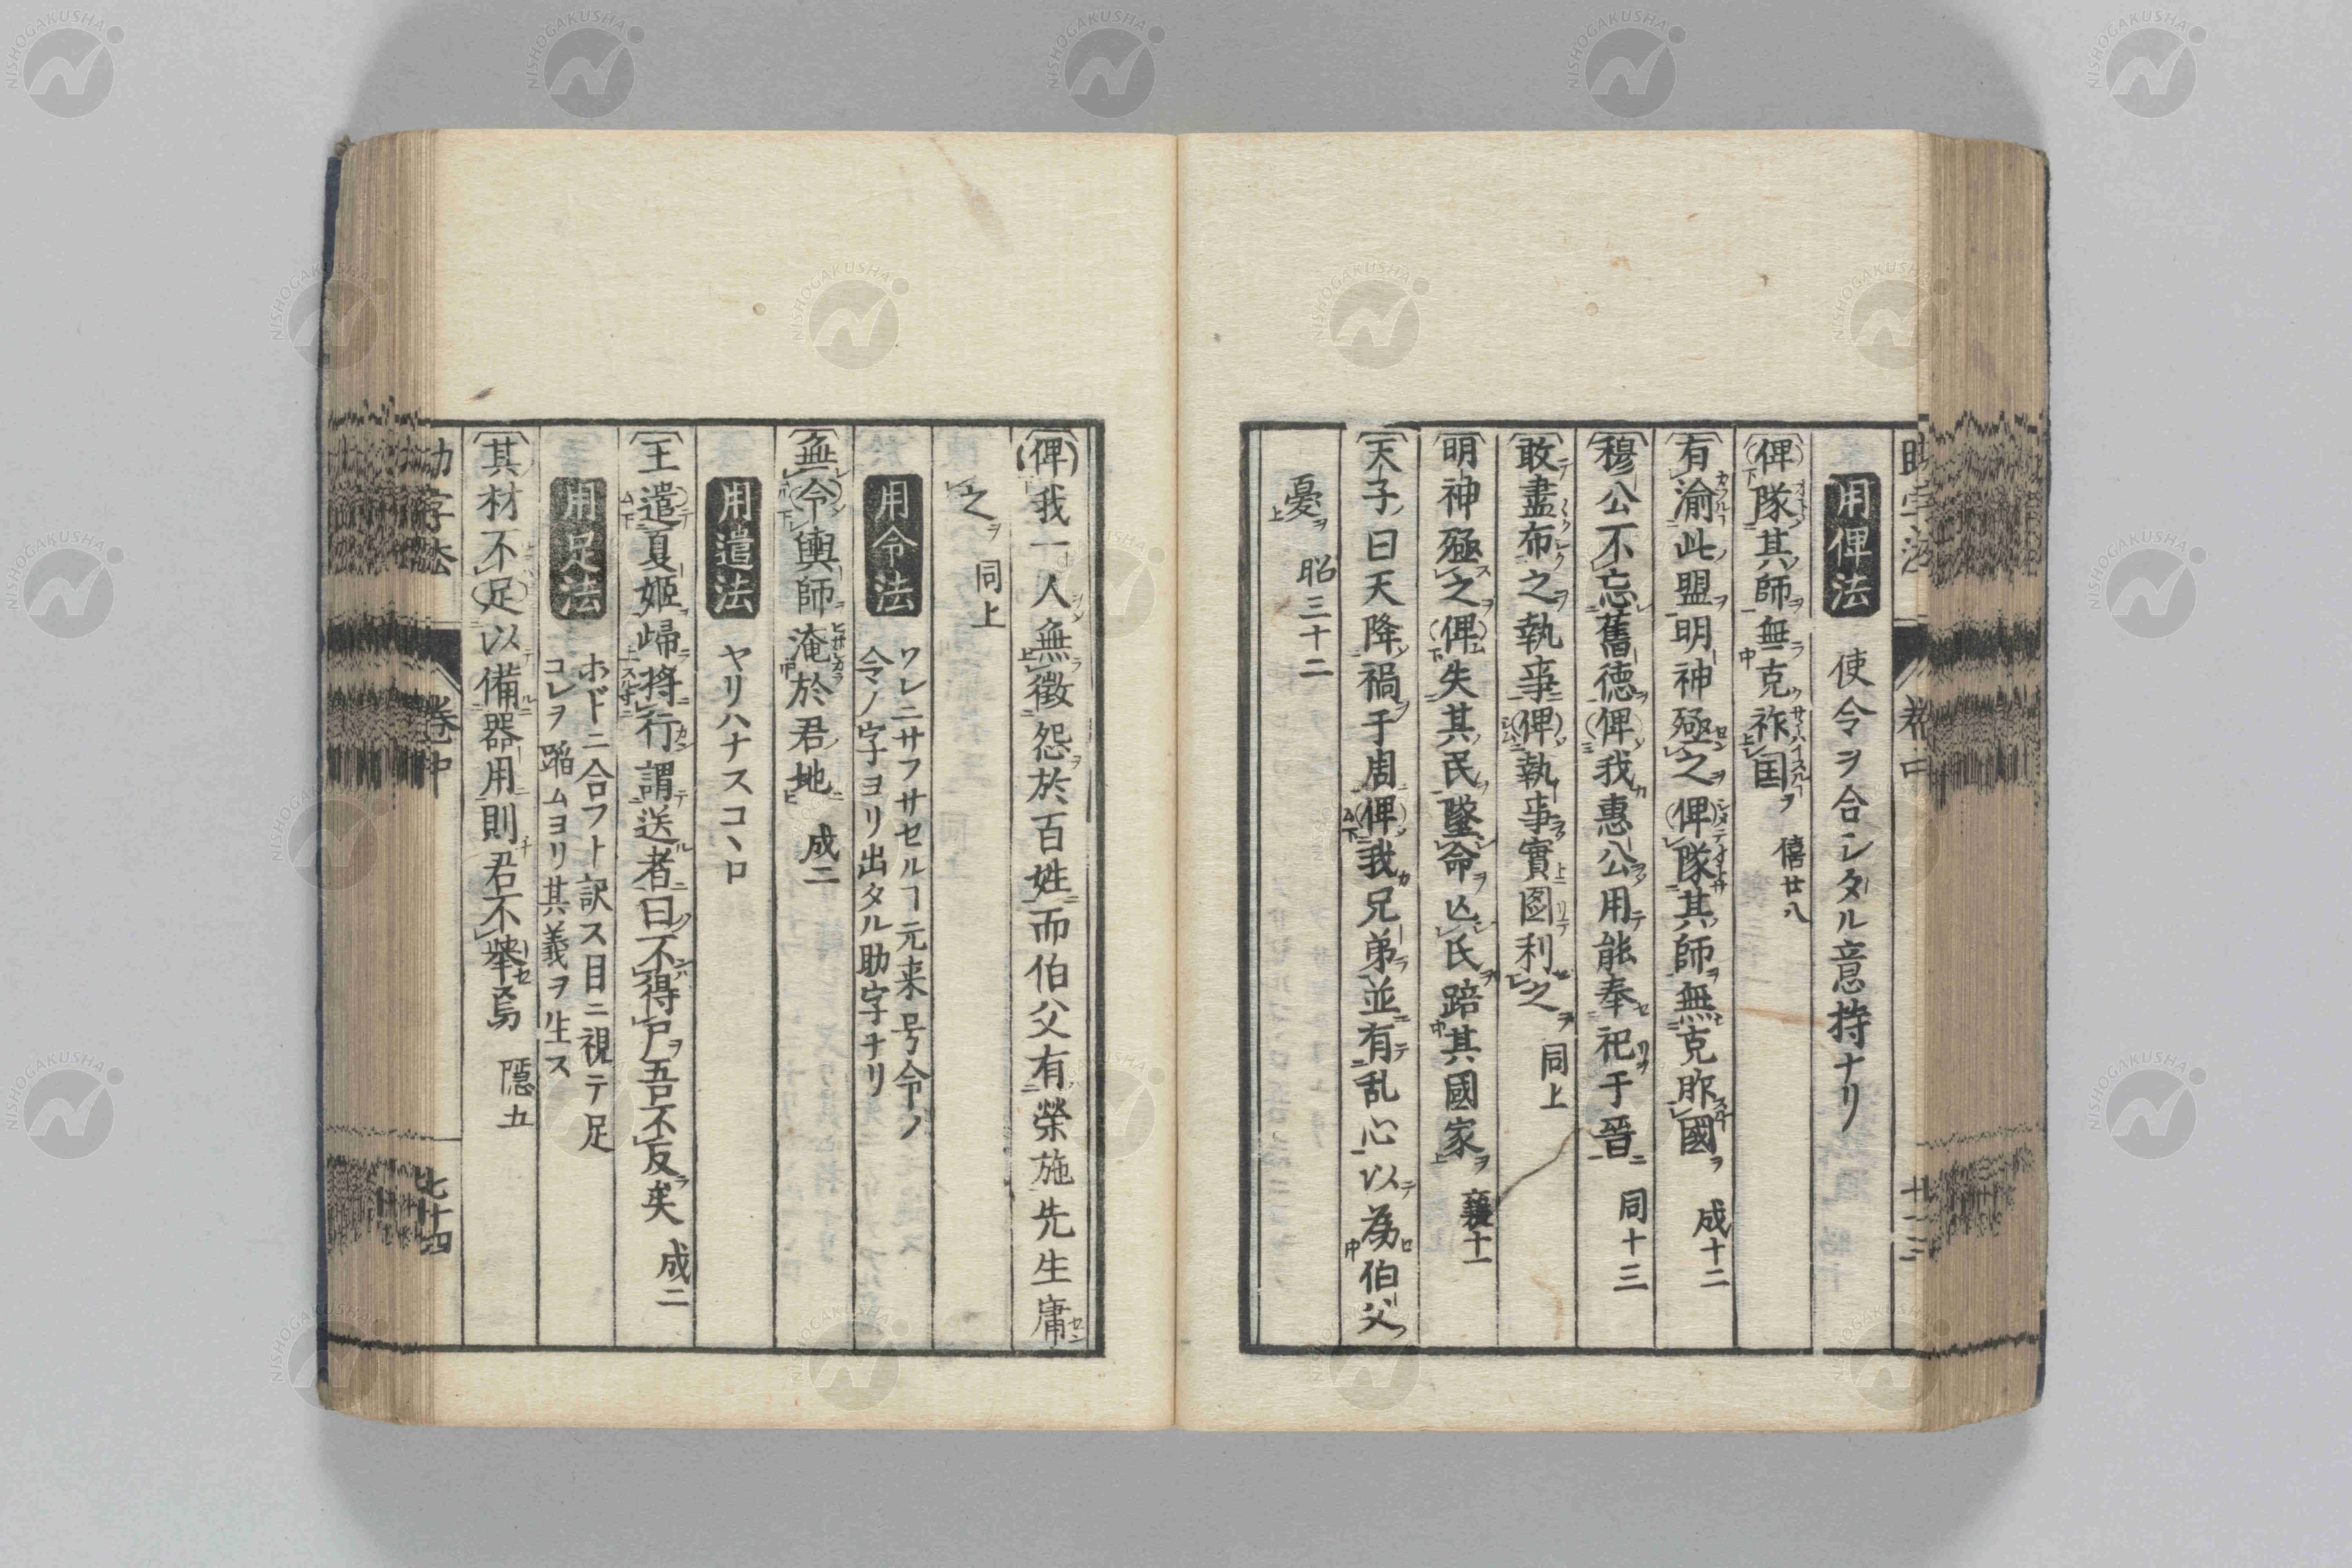 用俾法 使令ヲ合シタル意持ナリ
俾隊其師無克祚国 僖廿八
有渝此盟明神殛之俾隊其師無克胙國 成十二
穆公不忘舊徳俾我惠公用能奉祀于晉 同十三
敢盡布之執事俾執事實圖利之 同上
明神殛之俾失其民墜命亡氏踣其國家 襄十一
天子曰天降禍于周俾我兄弟並有乱心以為伯父
憂 昭三十二
俾我一人無徴怨於百姓而伯父有榮施先生庸
之 同上
用令法 ワレニサフサセルヿ元来号令ノ
令ノ字ヨリ出タル助字ナリ
無令輿師淹於君地 成二
用遣法 ヤリハナスコヽロ
王遣夏姫歸將行謂送者曰不得尸吾不反矣 成二
用足法 ホドニ合フト訳ス目ニ視テ足
コレヲ蹈ムヨリ其義ヲ生ス
其材不足以備器用則君不舉焉 隱五
助字法 卷中 七十四
NISHOGAKUSHA